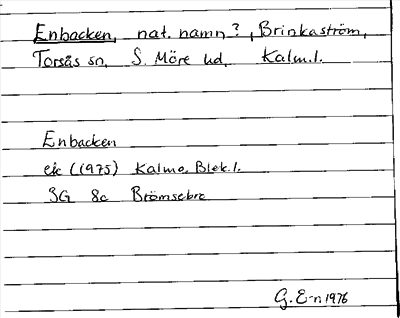 Enbacken, nat. namn?, Brinkaström,
Torsås sn, S. Möre hd, Kalm.l.
Enbacken
ek (1975) Kalm o. Blek.l.
3G 8c Brömsebro
G. E-n 1976